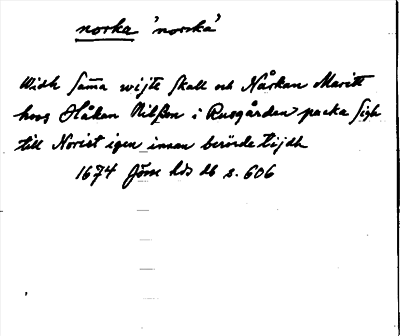 norka 'norska'
Widh sama wijte skall och Nårkan Maritt
hoos Håkan Nilsson i Rusgården packa sigh
till Noriet igen innan berörde tijdh
1674 Jösse hds db s. 606